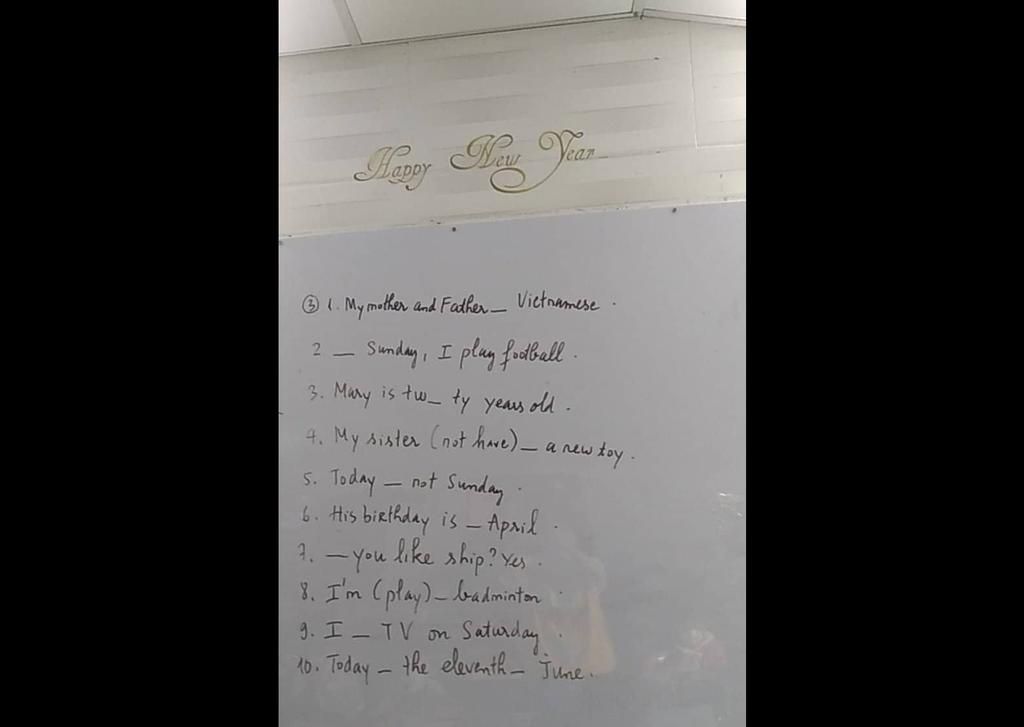 Happy New Year
③ 1. My mother and Father _ Vietnamese.
2 _ Sunday, I play football.
3. Mary is tw_ ty years old.
4. My sister (not have) _ a new toy.
5. Today _ not Sunday.
6. His birthday is _ April.
7. _ you like ship? Yes.
8. I'm (play) _ badminton.
9. I _ TV on Saturday.
10. Today _ the eleventh _ June.